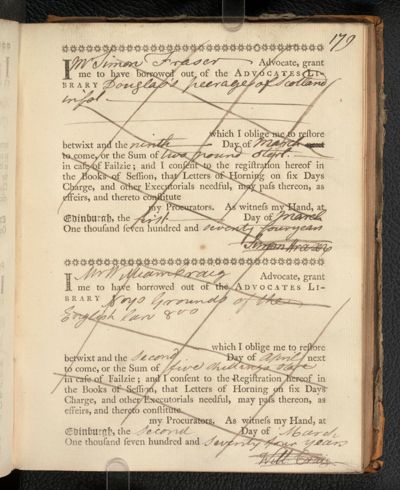 179
I Mr Simon Fraser Advocate, grant
me to have borrowed out of the ADVOCATES LI-
BRARY Douglass's peerage of Scotland
in fol
which I oblige me to reſtore
betwixt and the ninth Day of March next
to come, or the Sum of two pound sters.
in caſe of Failzie; and I conſent to the regiſtration hereof in
the Books of Seſſion, that Letters of Horning on ſix Days
Charge, and other Executorials needful, may paſs thereon, as
effeirs, and thereto conſtitute
my Procurators. As witneſs my Hand, at
Edinburgh, the first Day of March
One thouſand ſeven hundred and seventy four years
Simon Fraser
I Mr William Craig Advocate, grant
me to have borrowed out of the ADVOCATES LI-
BRARY Noys Grounds of the
English Law 8vo
which I oblige me to reſtore
betwixt and the Second Day of April next
to come, or the Sum of five shillings
in caſe of Failzie; and I conſent to the Regiſtration hereof in
the Books of Seſſion, that Letters of Horning on ſix Days
Charge, and other Executorials needful, may paſs thereon, as
effeirs, and thereto conſtitute
my Procurators. As witneſs my Hand, at
Edinburgh, the Second Day of March
One thouſand ſeven hundred and Seventy four years
Will Craig